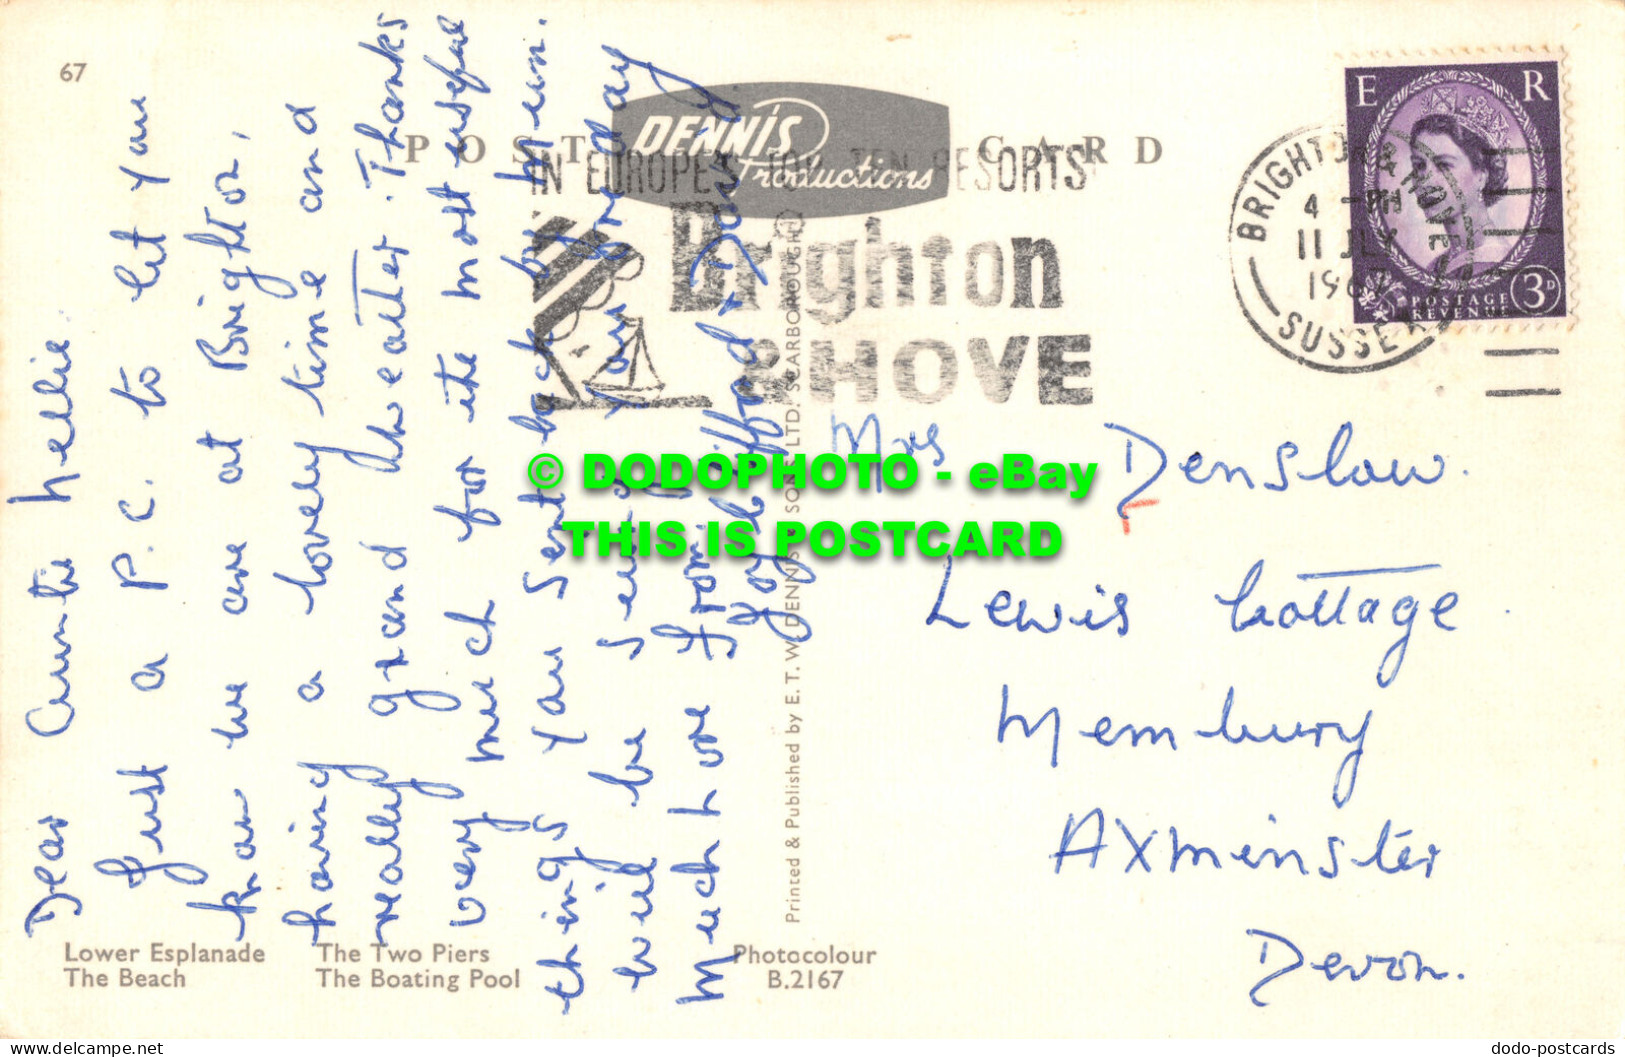 67
POST CARD
DENNIS
Productions
IN EUROPE'S TOP TEN RESORTS
Brighton
& HOVE
BRIGHTON & HOVE
4 - PM
11 JLY
SUSSEX
E R
POSTAGE
REVENUE
3D
Dear Auntie Nellie.
Just a P.C. to let you
know we are at Brighton,
having a lovely time and
really grand weather. Thanks
very much for the most useful
things you sent back by mum.
will be seeing you
Much love from
Joy Clifford & Doug
Printed & Published by E. T. W. DENNIS & SONS LTD. SCARBOROUGH
Mrs Denslow.
Lewis Cottage
Membury
Axminster
Devon.
Lower Esplanade The Two Piers
The Beach The Boating Pool
Photocolour
B.2167
© DODOPHOTO - eBay
THIS IS POSTCARD
delcampe.net
dodo-postcards